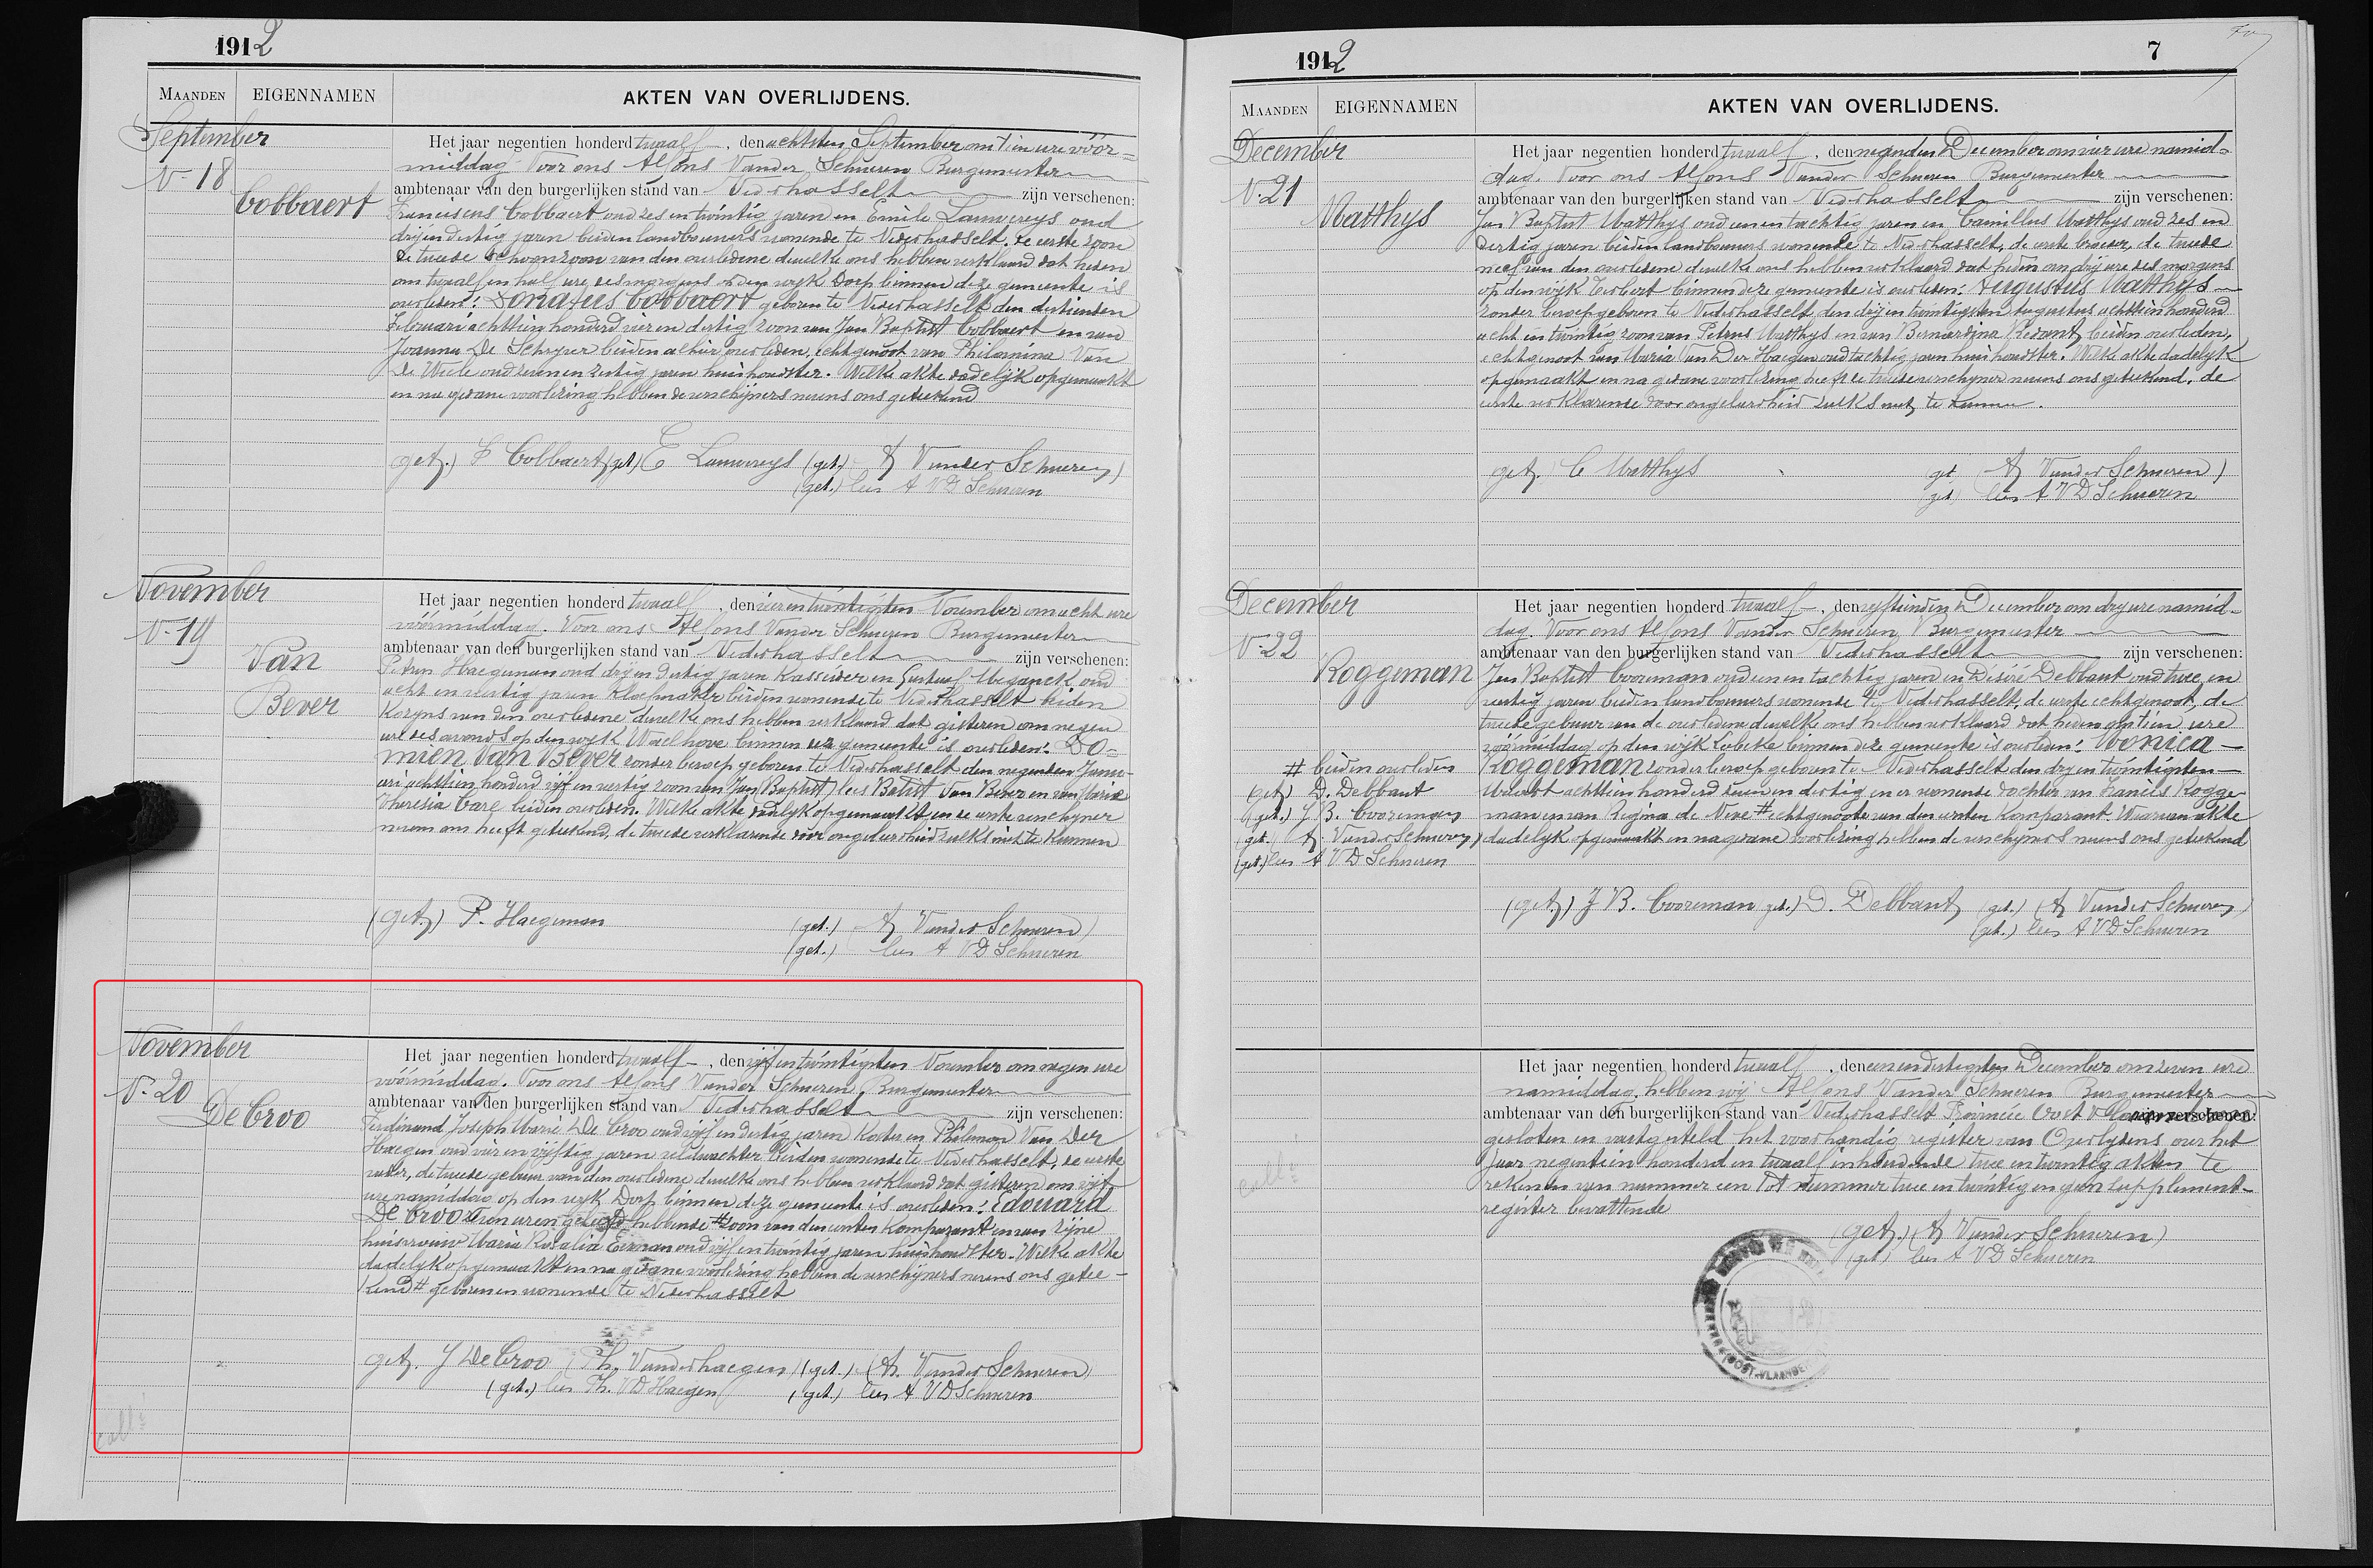 1912
MAANDEN EIGENNAMEN AKTEN VAN OVERLIJDENS.
September
N- 18
Cobbaert
Het jaar negentien honderd twaalf, den achtsten September om tien ure vóór-
middag. Voor ons Alfons Vander Schueren Burgemeester
ambtenaar van den burgerlijken stand van Nederhasselt zijn verschenen:
Franciscus Cobbaert oud zes en twintig jaren en Emile Lauwereys oud
drij en dertig jaren beiden landbouwers wonende te Nederhasselt, de eerste zoon
de tweede schoonzoon van den overledene dewelke ons hebben verklaard dat heden
om twaalf en half ure des morgens op den wyk Dorp binnen deze gemeente is
overleden: Donatus Cobbaert geboren te Nederhasselt den dertienden
Februari achttien honderd vier en dertig zoon van Jan Baptist Cobbaert en van
Joanna De Schryver beiden alhier overleden, echtgenoot van Philomina Van
De Wiele oud zeven en zestig jaren huishoudster. Welke akte dadelijk opgemaakt
en na gedane voorlezing hebben de verschijners nevens ons geteekend
get.) F Cobbaert (get.) E Lauwereys (get.) A Vander Schueren)
(get.) lees A VD Schueren
November
N- 19
Van
Bever
Het jaar negentien honderd twaalf, den vier en twintigsten November om acht ure
vóórmiddag. Voor ons Alfons Vander Schueren Burgemeester
ambtenaar van den burgerlijken stand van Nederhasselt zijn verschenen:
Petrus Haegeman oud drij en dertig jaren Kasseider en Gustaaf Meganck oud
acht en veertig jaren Kloefmaker beiden wonende te Nederhasselt beiden
Kozyns van den overledene dewelke ons hebben verklaard dat gisteren om negen
ure des avonds op den wyk Waelhove binnen deze gemeente is overleden: Do-
mien Van Bever zonder beroep geboren te Nederhasselt den negenden Janu-
ari achttien honderd vijf en veertig zoon van Jan Baptist) lees Batist Van Bever en van Maria
Theresia Carel beiden overleden. Welke akte dadelyk opgemaakt en de eerste verschyner
nevens ons heeft geteekend, de tweede verklarende door ongeleerdheid zulks niet te kunnen
(get.) P. Haegeman (get.) A Vander Schueren)
(get.) lees A VD Schueren
November
N- 20
De Croo
Het jaar negentien honderd twaalf, den vijf en twintigsten November om negen ure
vóórmiddag. Voor ons Alfons Vander Schueren Burgemeester
ambtenaar van den burgerlijken stand van Nederhasselt zijn verschenen:
Ferdinand Joseph Marie De Croo oud vijf en dertig jaren Koster en Philemon Van Der
Haegen oud vier en vijftig jaren veldwachter beiden wonende te Nederhasselt, de eerste
vader, de tweede gebuur van den overledene dewelke ons hebben verklaard dat gisteren om vijf
ure namiddag op den wyk Dorp binnen deze gemeente is overleden: Edouard
De Croo uren geleefd hebbende # zoon van den eersten Komparant en van zijne
huisvrouw Maria Rosalia Eeman oud vijf en twintig jaren huishoudster. Welke akte
dadelyk opgemaakt en na gedane voorlezing hebben de verschijners nevens ons getee-
kend # geboren en wonende te Nederhasselt
get. J De Croo (Th. Vanderhaegen) (get.) (A. Vander Schueren)
(get.) lees Ph. VD Haegen (get.) lees A VD Schueren
1912 7
MAANDEN EIGENNAMEN AKTEN VAN OVERLIJDENS.
December
N- 21
Matthys
Het jaar negentien honderd twaalf, den negenden December om vier ure namid-
dag. Voor ons Alfons Vander Schueren Burgemeester
ambtenaar van den burgerlijken stand van Nederhasselt zijn verschenen:
Jan Baptist Matthys oud een en tachtig jaren en Camillus Matthys oud zes en
dertig jaren beiden landbouwers wonende te Nederhasselt, de eerste broeder, de tweede
neef van den overledene dewelke ons hebben verklaard dat heden om drij ure des morgens
op den wijk binnen deze gemeente is overleden: Augustus Matthys
zonder beroep geboren te Nederhasselt den drij en twintigsten Augustus achttien honderd
acht en twintig zoon van Petrus Matthys en van Bernardina Redant beiden overleden,
echtgenoot van Maria Van Der Haegen oud tachtig jaren huishoudster. Welke akte dadelyk
opgemaakt en na gedane voorlezing heeft de tweede verschyner nevens ons geteekend, de
eerste verklarende door ongeleerdheid zulks niet te kunnen.
get. C Matthys get A Vander Schueren)
get lees A VD Schueren
December
N- 22
Roggeman
Het jaar negentien honderd twaalf, den vyftienden December om dry ure namid-
dag. Voor ons Alfons Vander Schueren Burgemeester
ambtenaar van den burgerlijken stand van Nederhasselt zijn verschenen:
Jan Baptist Cooreman oud een en tachtig jaren en Désiré Debbaut oud twee en
veertig jaren beiden landbouwers wonende te Nederhasselt, de eerste echtgenoot, de
tweede gebuur van de overledene dewelke ons hebben verklaard dat heden om tien ure
vóórmiddag op den wijk Lobeke binnen deze gemeente is overleden: Monica
Roggeman zonder beroep geboren te Nederhasselt den dry en twintigsten
Maart achttien honderd zeven en dertig en er wonende dochter van Francis Rogge-
man en van Regina de Neve # echtgenoote van den eersten Komparant. Waarvan akte
dadelyk opgemaakt en na gedane voorlezing hebben de verschyners nevens ons geteekend
# beiden overleden
(get.) D. Debbaut
(get.) J B. Cooreman
(get.) A Vander Schueren)
(get.) lees A VD Schueren
(get.) J B. Cooreman get.) D. Debbaut (get.) (A Vander Schueren)
(get.) lees A VD Schueren
Het jaar negentien honderd twaalf, den een en dertigsten December om zeven ure
namiddag hebben wij Alfons Vander Schueren Burgemeester
ambtenaar van den burgerlijken stand van Nederhasselt Provincie Oost Vlaanderen zijn verschenen:
gesloten en vastgesteld het voorhandig register van Overlydens over het
jaar negentien honderd en twaalf inhoudende twee en twintig akten te
rekenen van nummer een tot nummer twee en twintig en geen supplement-
register bevattende
(get.) (A Vander Schueren)
(get) lees A VD Schueren